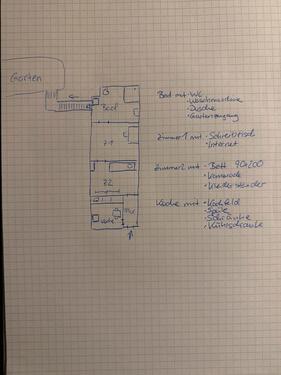 Garten
Bad
Bad mit · WC
· Waschmaschine
· Dusche
· Gartenzugang
Zimmer 1 mit · Schreibtisch
· Internet
Z1
Zimmer 2 mit · Bett 90x200
· Kommode
· Kleiderständer
Z2
Küche mit · Kochfeld
· Spüle
· Schränke
· Kühlschrank
Flur
Küche